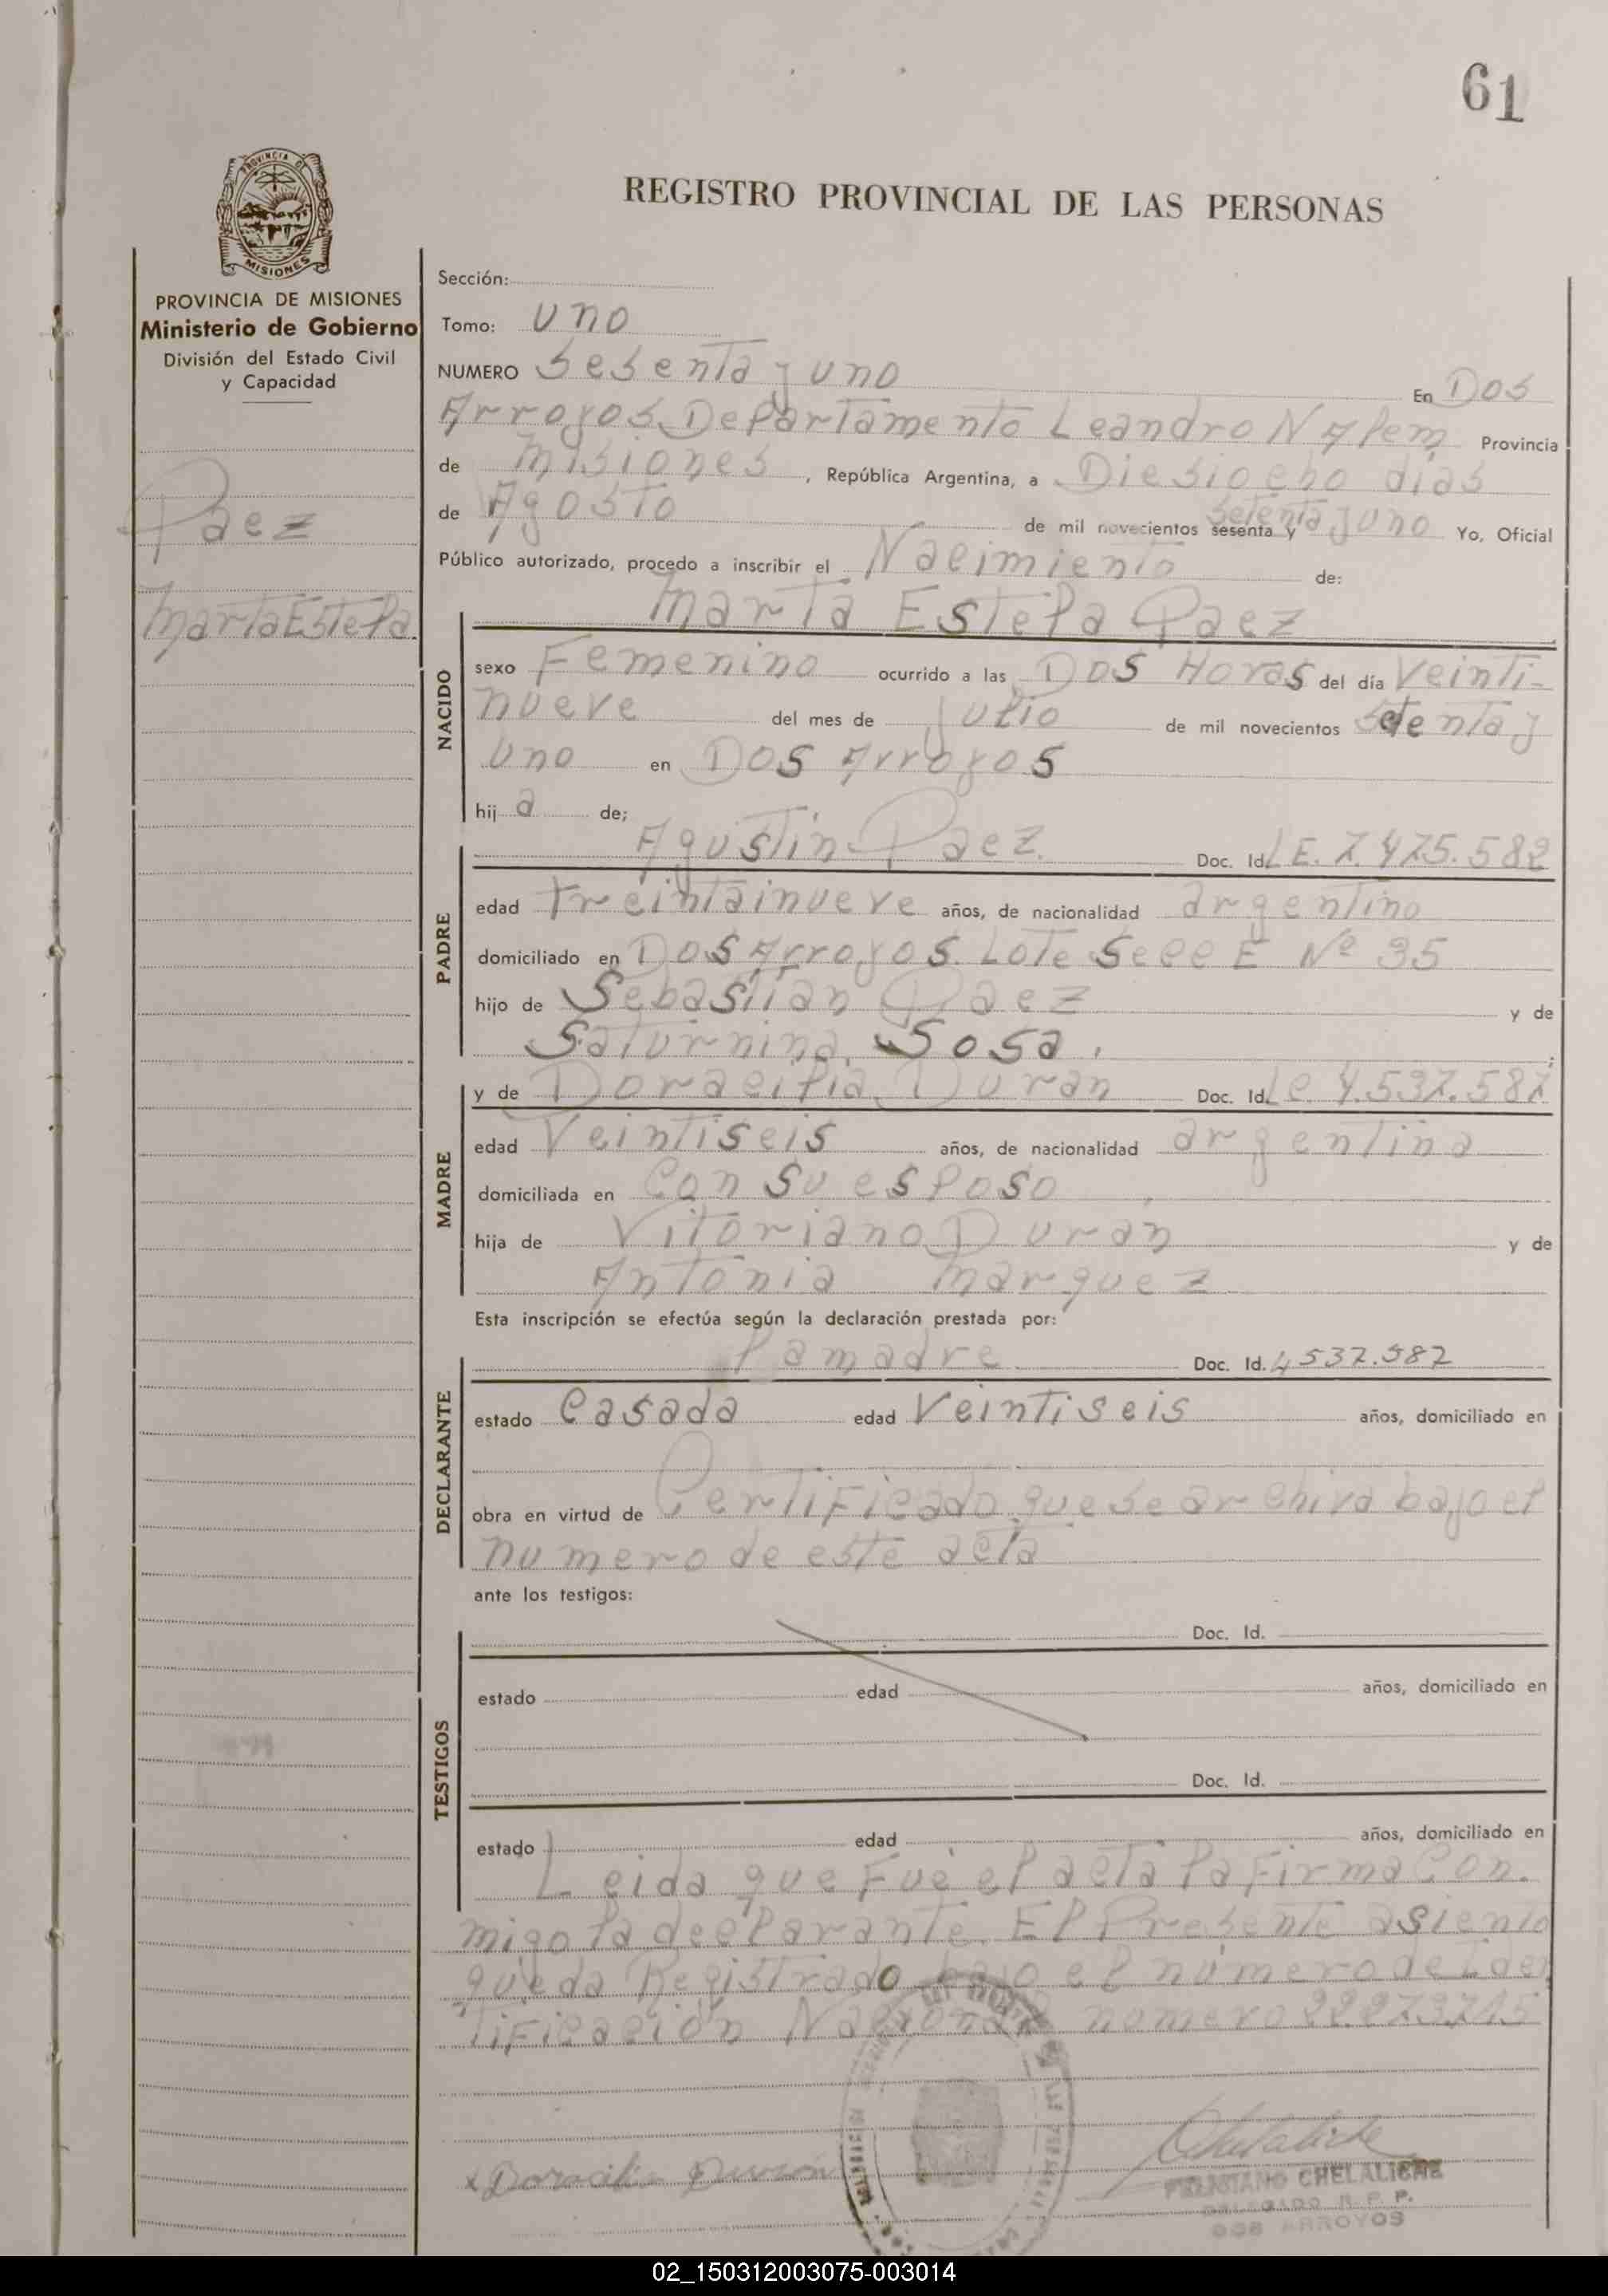 61
REGISTRO PROVINCIAL DE LAS PERSONAS
PROVINCIA DE
MISIONES
PROVINCIA DE MISIONES
Ministerio de Gobierno
División del Estado Civil
y Capacidad
Paez
Marta Estela
Sección:
Tomo: uno
NUMERO Sesenta y uno En Dos
Arroyos Departamento Leandro N Alem Provincia
de Misiones, República Argentina, a Diesiocho días
de Agosto de mil novecientos sesenta y setenta y uno Yo, Oficial
Público autorizado, procedo a inscribir el Nacimiento de:
Marta Estela Paez
NACIDO
sexo Femenino ocurrido a las Dos Horas del día Veinti-
nueve del mes de Julio de mil novecientos Setenta y
uno en Dos Arroyos
hij a de;
Agustin Paez. Doc. Id. LE. 7.475.582
PADRE
edad treintainueve años, de nacionalidad argentino
domiciliado en Dos Arroyos. Lote Secc E Nº 35
hijo de Sebastian Paez y de
Saturnina Sosa.
y de Doracilia Duran Doc. Id. Lc. 4.537.587
MADRE
edad Veintiseis años, de nacionalidad argentina
domiciliada en Con su esposo
hija de Vitoriano Duran y de
Antonia Marquez
Esta inscripción se efectúa según la declaración prestada por:
la madre Doc. Id. 4537.587
DECLARANTE
estado Casada edad Veintiseis años, domiciliado en
obra en virtud de Certificado que se archiva bajo el
numero de este acta
ante los testigos:
TESTIGOS
Doc. Id.
estado edad años, domiciliado en
Doc. Id.
estado edad años, domiciliado en
Leida que Fué el acta la Firma Con.
migo la declarante. El Presente asiento
queda Registrado bajo el número de Iden
tificación Nacional numero 22.273.715
x Doracilia Duran
FELICIANO CHELALICHE
DELEGADO R. P. P.
DOS ARROYOS
02_150312003075-003014